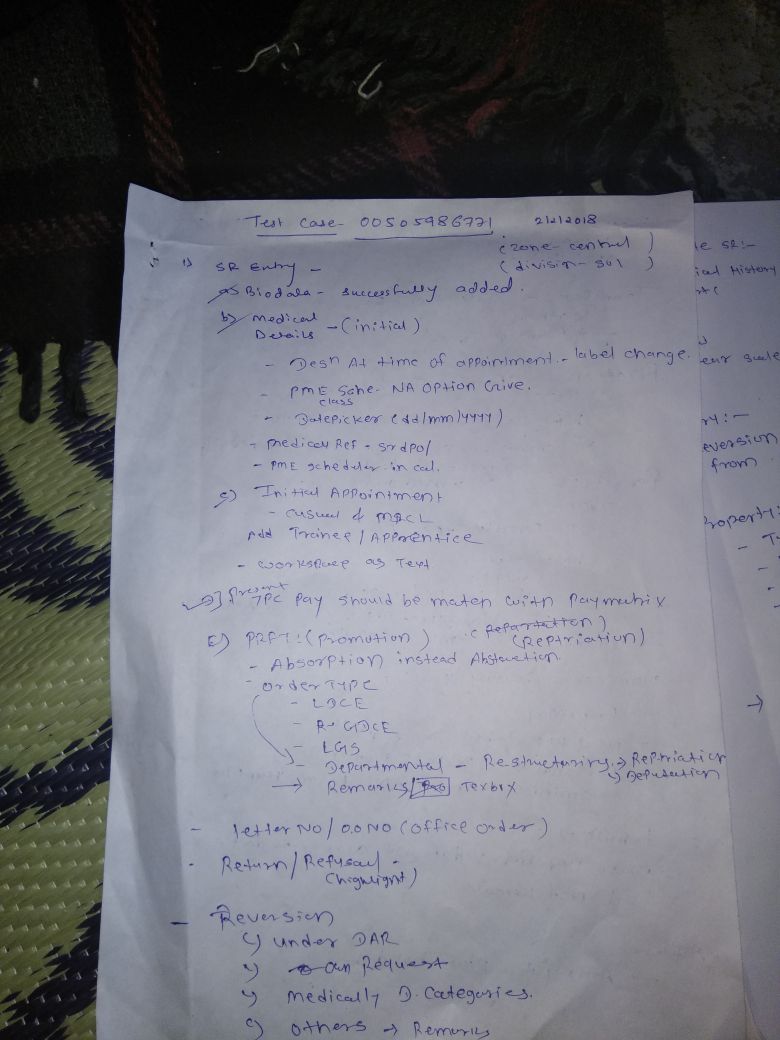 Test case - 00505986771   2/2/2018
(zone - central)
(division - sur)
1) SR Entry -
a) Biodata - successfully added.
b) medical Details - (initial)
- Desn At time of appointment. - label change.
- PME Sche- NA Option Give.
class
- Datepicker (dd/mm/yyyy)
- medical Ref - srdpo/
- PME scheduler in cal.
c) Initial Appointment
- casual & MACL
Add Trainee / Apprentice
- workspace as Text
D] Present 7PC Pay should be match with Paymatrix
E) PRFT: (promotion) (Repartation)
(Reptriation)
- Absorption instead Abstraction.
- order TYPE
- LDCE
- R- GDCE
- LGS
- Departmental - Re-structuring. → Reptriation
Deputation
→ Remarks/ Texbox
- letter NO / O.O NO (office order)
- Return / Refusal -
(highlight)
- Reversion
under DAR
on Request
medically D. Categories.
others → Remarks
e SR:-
ical History
ear scale
ry: -
eversion
from
roperty: